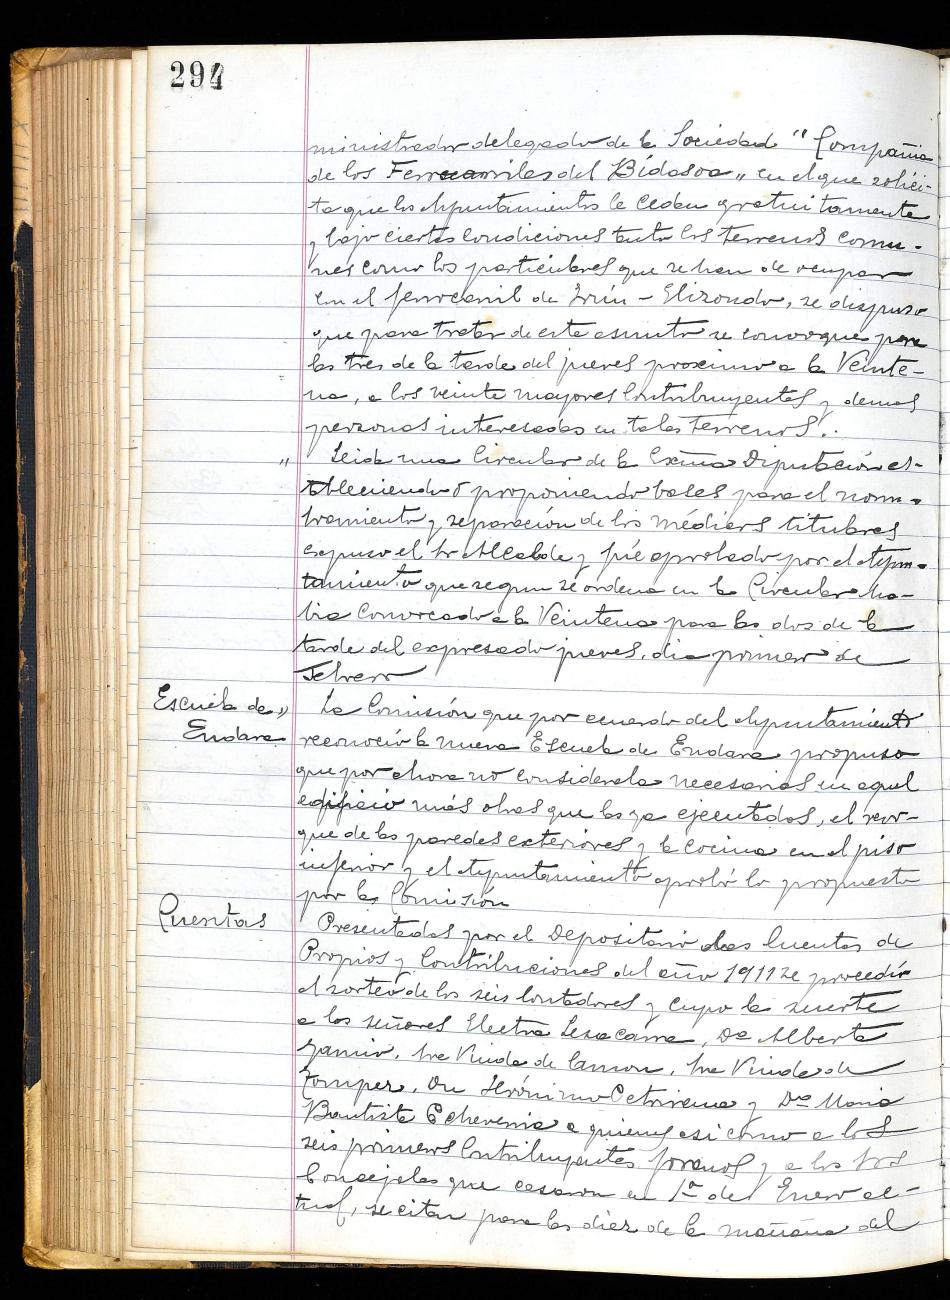 294
ministrador delegado de la Sociedad "Compañia
de los Ferrocarriles del Bidasoa" en el que solici-
ta que los Ayuntamientos le cedan gratuitamente
y bajo ciertas condiciones tanto los terrenos comu-
nes como los particulares que se han de ocupar
en el ferrocarril de Irún - Elizondo, se dispuso
que para tratar de este asunto se convoque para
las tres de la tarde del jueves proximo a la Veinte-
na, a los veinte mayores Contribuyentes y demas
personas interesadas en tales terrenos.
" Leida una Circular de la Excma Diputación es-
tableciendo ó proponiendo bases para el nom-
bramiento y separación de los médicos titulares
expuso el Sr Alcalde y fué aprobado por el Ayun-
tamiento que segun se ordena en la Circular ha-
bia convocado a la Veintena para las dos de la
tarde del expresado jueves, dia primero de
Febrero
Escuela de "
Endara
La Comisión que por acuerdo del Ayuntamiento
reconoció la nueva Escuela de Endara propuso
que por ahora no considerala necesarias en aquel
edificio más obras que las ya ejecutadas, el revo-
que de las paredes exteriores y la cocina en el piso
inferior y el Ayuntamiento aprobó lo propuesto
por la Comisión
Cuentas
Presentadas por el Depositario las Cuentas de
Propios y Contribuciones del año 1911 se procedió
al sorteo de los seis Contadores y cupo la suerte
a los señores Electra Lesacarra, Da Alberta
Sra Viuda de Sra Viuda de
Dn Jerónimo y Da Maria
Bautista Echeverria a quienes asi como a los
seis primeros Contribuyentes foranos y a los tres
Concejales que cesaron en 1º de Enero ac-
tual, se citan para las diez de la mañana del